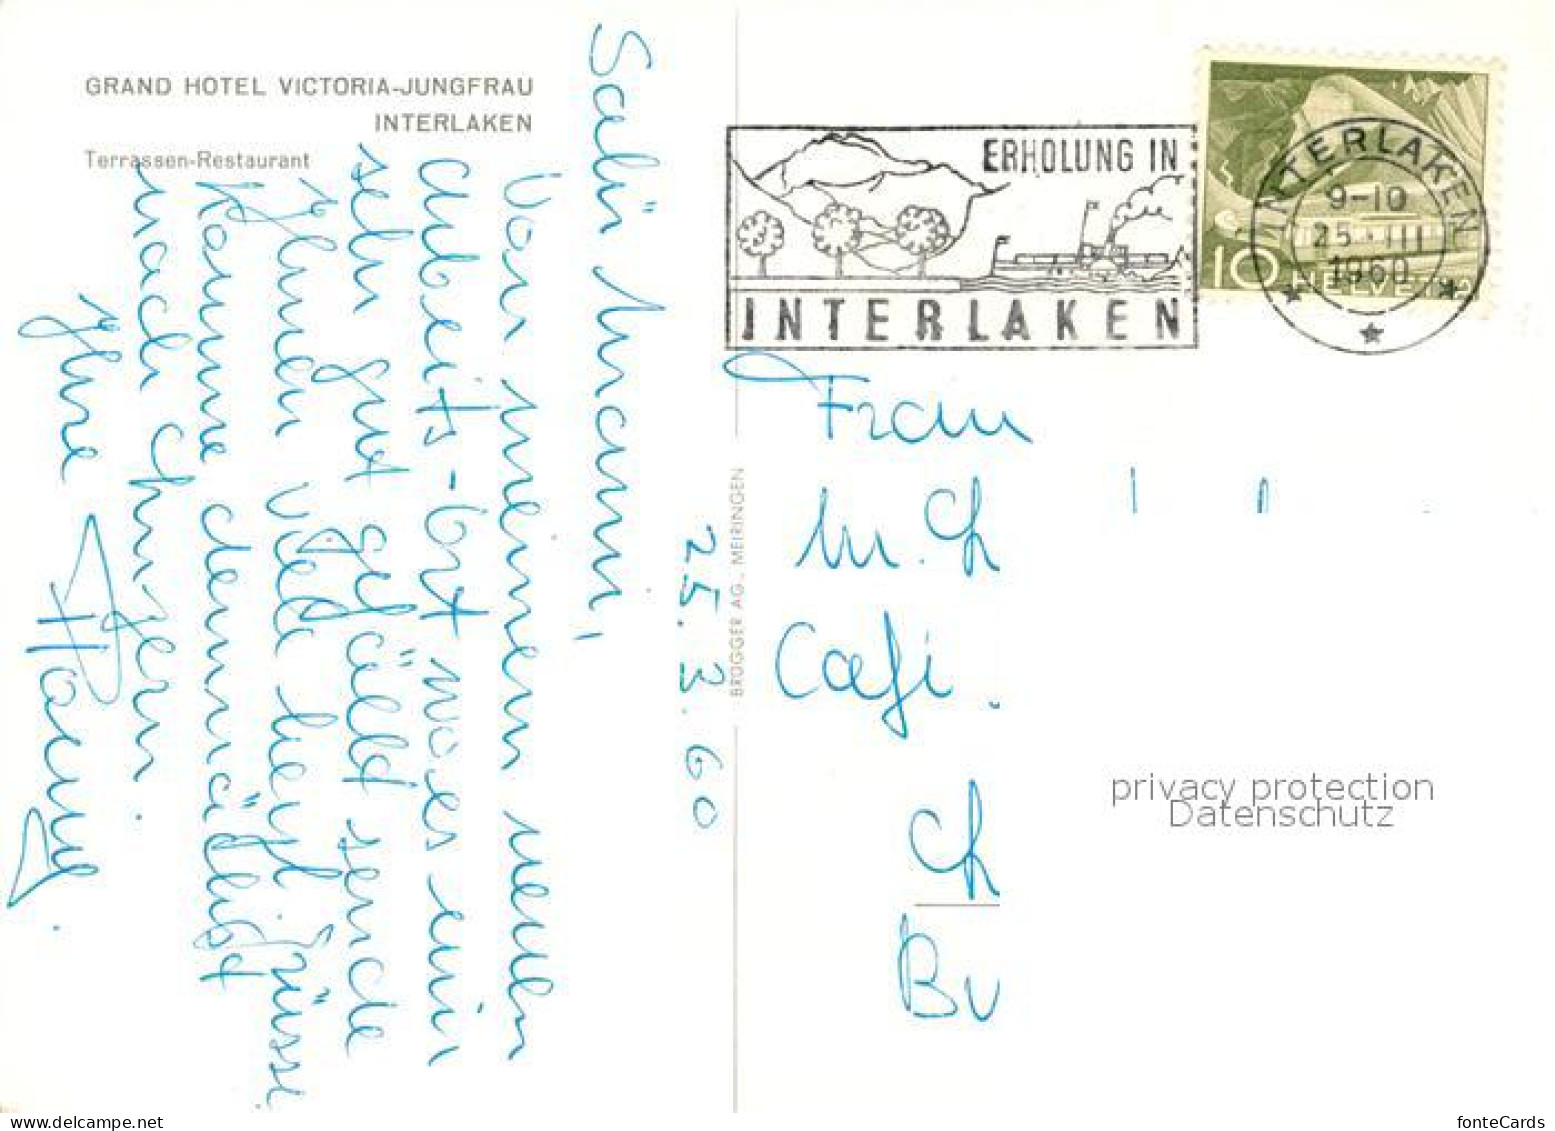 GRAND HOTEL VICTORIA-JUNGFRAU
INTERLAKEN
Terrassen-Restaurant
25.3.60
Salü Mami,
Von meinem neuen
Arbeits-Ort wo es mir
sehr gut gefällt sende
Ihnen viele herzl. Grüsse
Komme demnächst
nach
Ihre
BRÜGGER AG., MEIRINGEN
ERHOLUNG IN
INTERLAKEN
INTERLAKEN
9-10
25.III
1960
10 HELVETIA
Frau
M. Ch
Cafi.
Ch
privacy protection
Datenschutz
www.delcampe.net
fonteCards